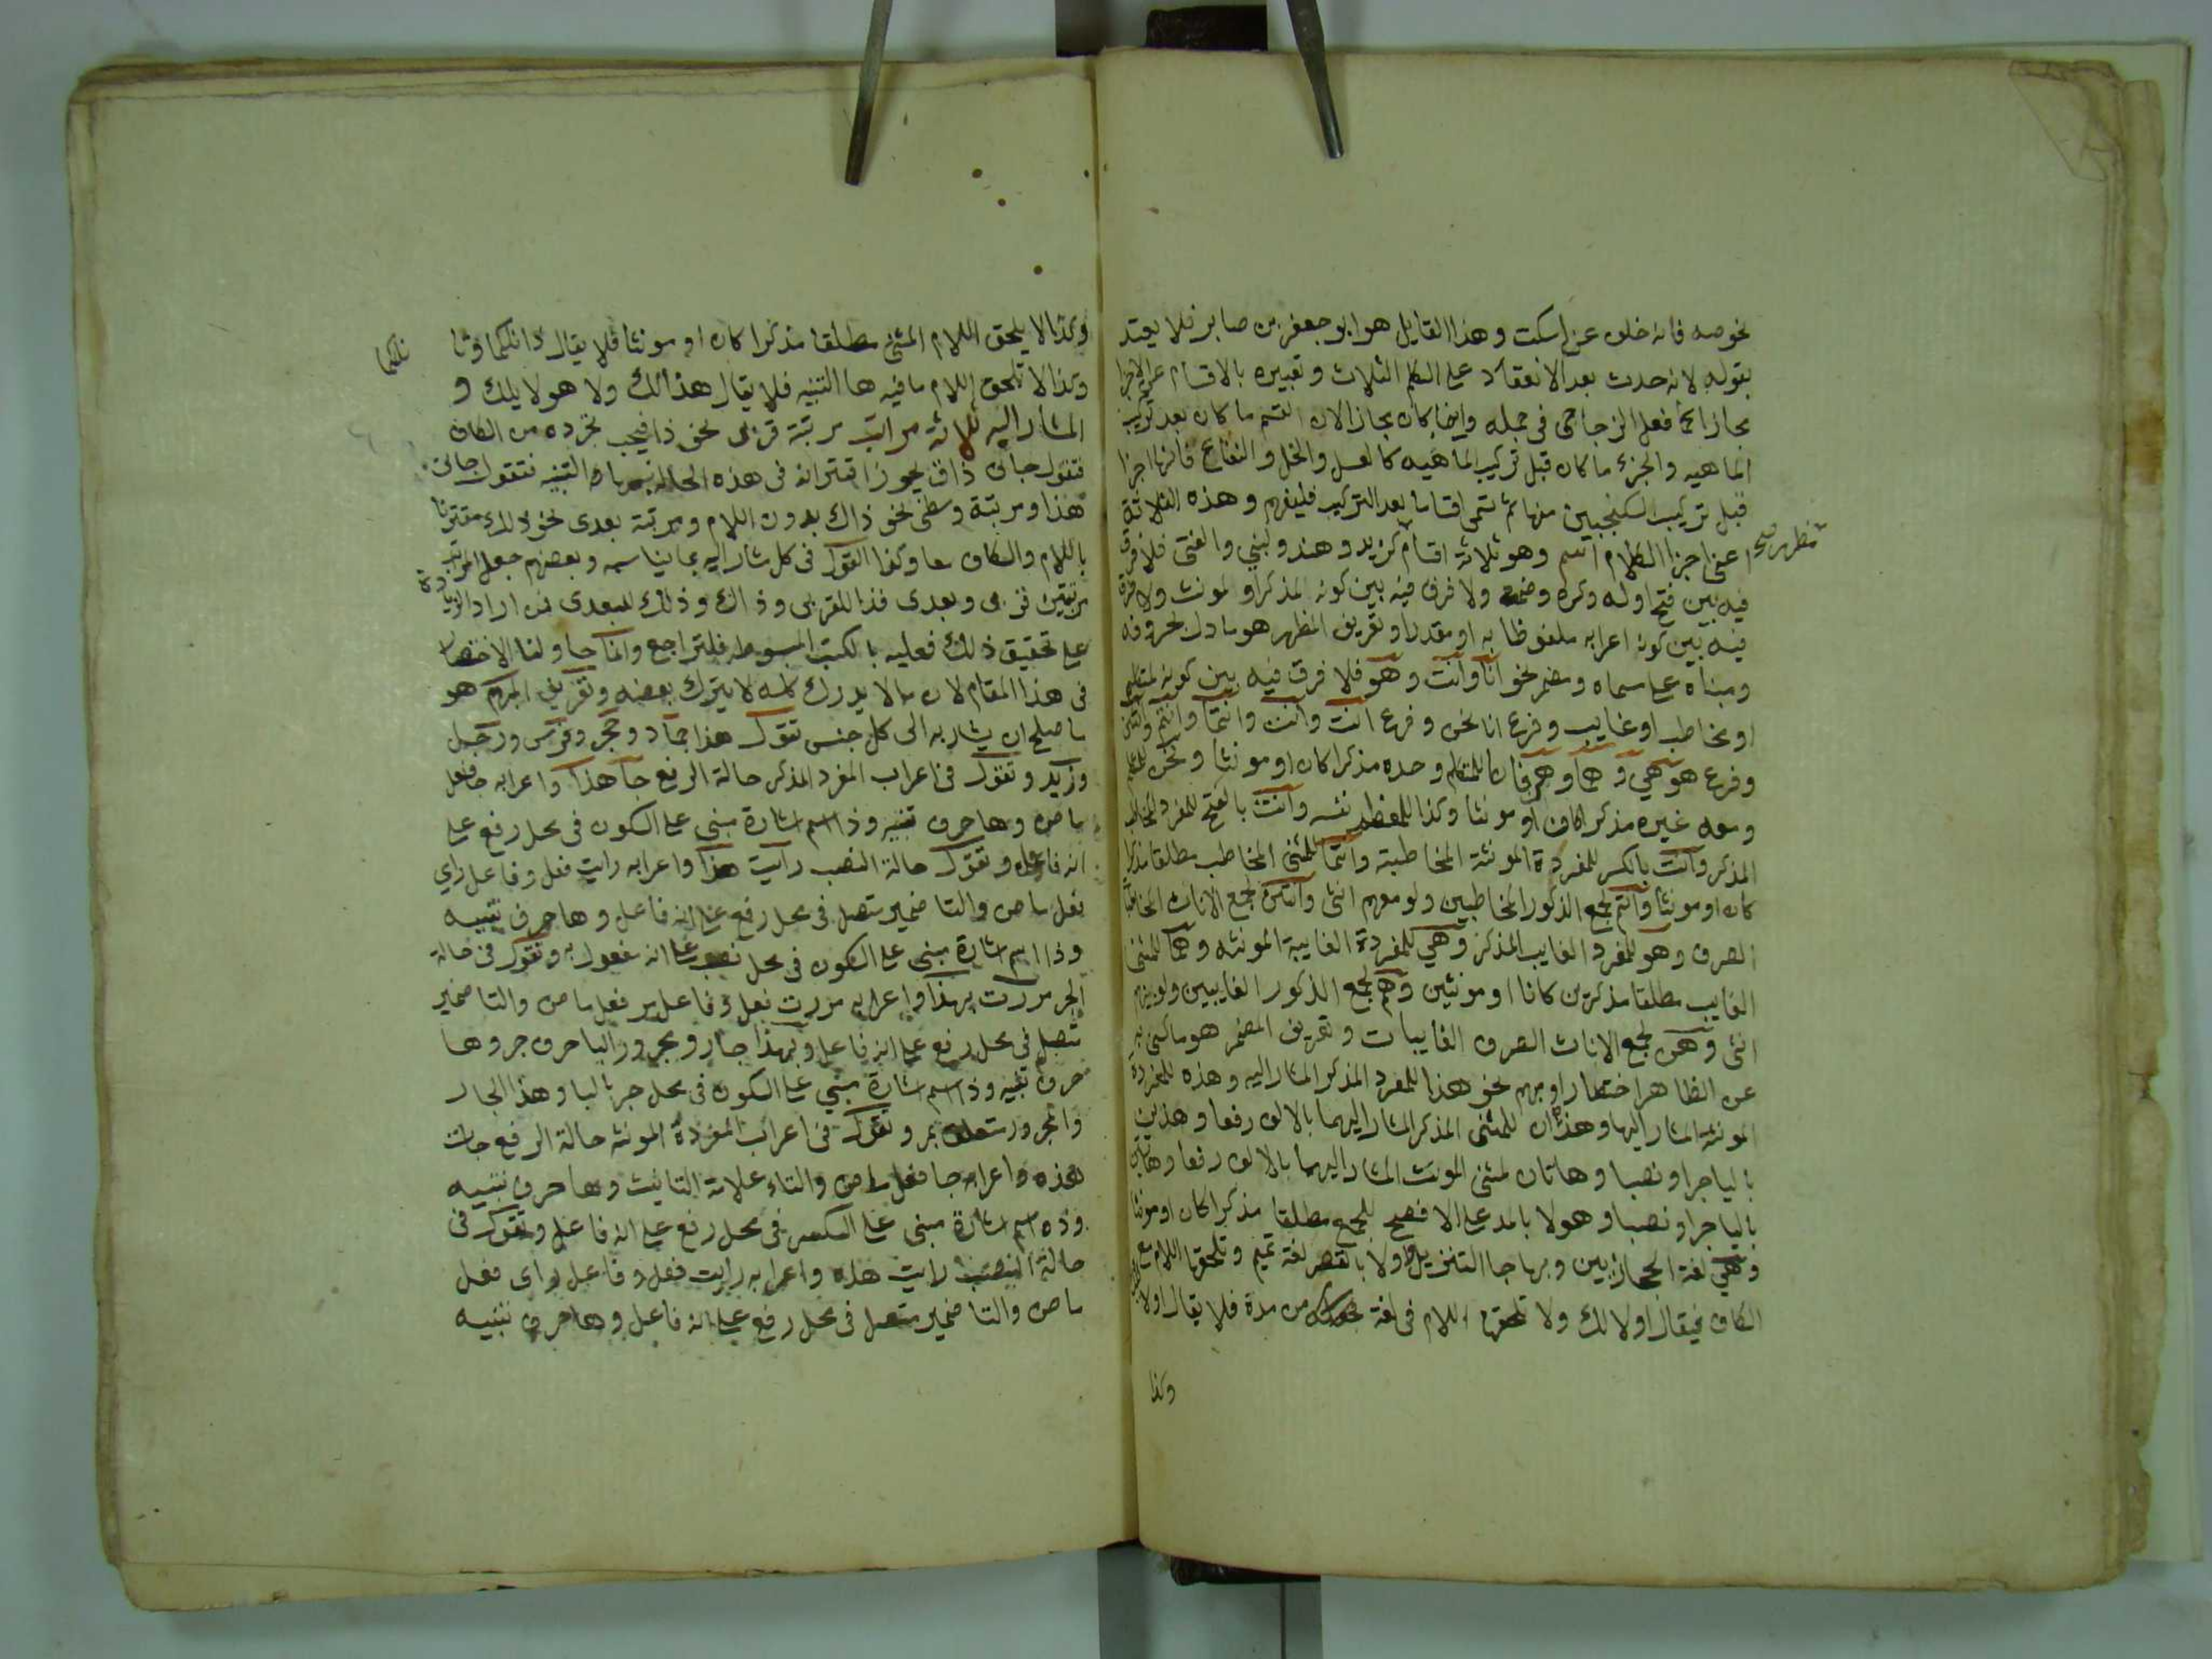 نحو صه فانه خلف عن اسكت وهذا القايل هو ابو جعفر بن صابر فلا يعتد
بقوله لانه حدث بعد الانعقاد على الكلم الثلاث وتعبيره بالاقسام عن الاجزا
مجازا كما فعل الزجاجي في جمله وانما كان مجازا لان القسم ما كان بعد تركيب
الماهيه والجزء ما كان قبل تركيب الماهيه كالعسل والخل والنعناع فانها اجزا
قبل تركيب السكنجبين منها ثم تسمى اقساما بعد التركيب فليفهم وهذه الثلاثة
اعنى اجزا الكلام اسم وهو ثلاثة اقسام كزيد وهند ولبني والفتى فلا فرق
مظهر صح
فيه بين فتح اوله وكسره وضمه ولا فرق فيه بين كونه المذكر او المونث ولا فرق
فيه بين كونه اعرابه ملفوظا به او مقدرا وتعريف المظهر هو ما دل بحروفه
ومبناه على مسماه ومضمر نحو انا وانت وهو فلا فرق فيه بين كونه لمتكلم
او مخاطب او غايب وفرع انا نحن وفرع انت وانت وانتما وانتم وانتن
وفرع هو هي وهما وهم فانا للمتكلم وحده مذكرا كان او مونثا ونحن للمتكلم
ومعه غيره مذكرا كان او مونثا وكذا للمعظم نفسه وانت بالفتح للمفرد المخاطب
المذكر وانت بالكسر للمفردة المونثة المخاطبة وانتما للمثنى المخاطب مطلقا مذكرا
كان او مونثا وانتم لجمع الذكور المخاطبين ولو معهم انثى وانتن لجمع الاناث المخاطبات
الصرف وهو للمفرد الغايب المذكر وهي للمفردة الغايبة المونثه وهما للمثنى
الغايب مطلقا مذكرين كانا او مونثين وهم لجمع الذكور الغايبين ولو بينهم
انثى وهن لجمع الاناث الصرف الغايبات وتعريف المضمر هو ما كنى به
عن الظاهر اختصارا ومبهم نحو هذا للمفرد المذكر المشار اليه وهذه للمفردة
المونثة المشار اليها وهذان للمثنى المذكر المشار اليهما بالالف رفعا وهذين
باليا جرا ونصبا وهاتان لمثنى المونث المشار اليهما بالالف رفعا وهاتين
باليا جرا ونصبا وهولا بالمد على الافصح للجمع مطلقا مذكرا كان او مونثا
وهي لغة الحجازيين وبها جا التنزيل واولا بالقصر لغة تميم وتلحقها اللام مع
الكاف فيقال اولالك ولا تلحقها اللام في لغة من مده فلا يقال اولا
وكذا
وكذا لا يلحق اللام المثنى مطلقا مذكرا كان او مونثا فلا يقال ذانلكما وتا
نلكما
وكذا لا تلحق اللام ما فيه ها التنبيه فلا يقال هذالك ولا هولايلك و
المشار اليه ثلاثة مراتب مرتبة قربى نحو ذا فيجب تجرده من الكاف
فتقول جانى ذا ويجوز اقترانه في هذه الحالة بها التنبيه فتقول جانى
هذا ومرتبة وسطى نحو ذاك بدون اللام ومرتبة بعدى نحو ذلك مقترنا
باللام والكاف معا وكذا القول في كل مشار اليه بما يناسبه وبعضهم جعل المراتب
مرتبتين قربى وبعدى فذا للقربى وذاك وذلك للبعدى فمن اراد الزيادة
على تحقيق ذلك فعليه بالكتب المبسوطه فلتراجع وانما حاولنا الاختصار
في هذا المقام لان ما لا يدرك كله لا يترك بعضه وتعريف المبهم هو
ما صلح ان يشار به الى كل جنس تقول هذا جماد وحجر وفرس ورجل
وزيد وتقول في اعراب المفرد المذكر حالة الرفع جا هذا واعرابه جا فعل
ماض وها حرف تنبيه وذا اسم اشارة مبنى على السكون في محل رفع على
انه فاعل وتقول حالة النصب رايت هذا واعرابه رايت فعل وفاعل راي
فعل ماض والتا ضمير متصل في محل رفع على انه فاعل وها حرف تنبيه
وذا اسم اشارة مبنى على السكون في محل نصب على انه مفعول به وتقول في حالة
الجر مررت بهذا واعرابه مررت فعل وفاعل مر فعل ماض والتا ضمير
متصل في محل رفع على انه فاعل وبهذا جار ومجرور البا حرف جر وها
حرف تنبيه وذا اسم اشارة مبني على السكون في محل جر بالبا وهذا الجار
والمجرور متعلق بمر وتقول في اعراب المفردة المونثه حالة الرفع جات
هذه واعرابه جا فعل ماض والتاء علامة التانيث وها حرف تنبيه
وذه اسم اشارة مبنى على الكسر في محل رفع على انه فاعل وتقول في
حالة النصب رايت هذه واعرابه رايت فعل وفاعل راى فعل
ماض والتا ضمير متصل في محل رفع على انه فاعل وها حرف تنبيه